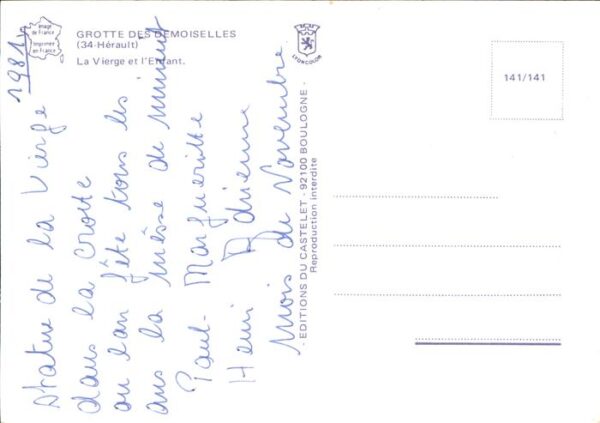 Image
de France
Imprimée
en France
GROTTE DES DEMOISELLES
(34-Hérault)
La Vierge et l'Enfant.
LYONCOLOR
141/141
- EDITIONS DU CASTELET - 92100 BOULOGNE -
Reproduction interdite
1981
Statue de la Vierge
dans la Grotte
ou l'an fête tous les
ans la mèsse de minuit
Paul- Margueritte
Henri Adrienne
Mois de Novembre